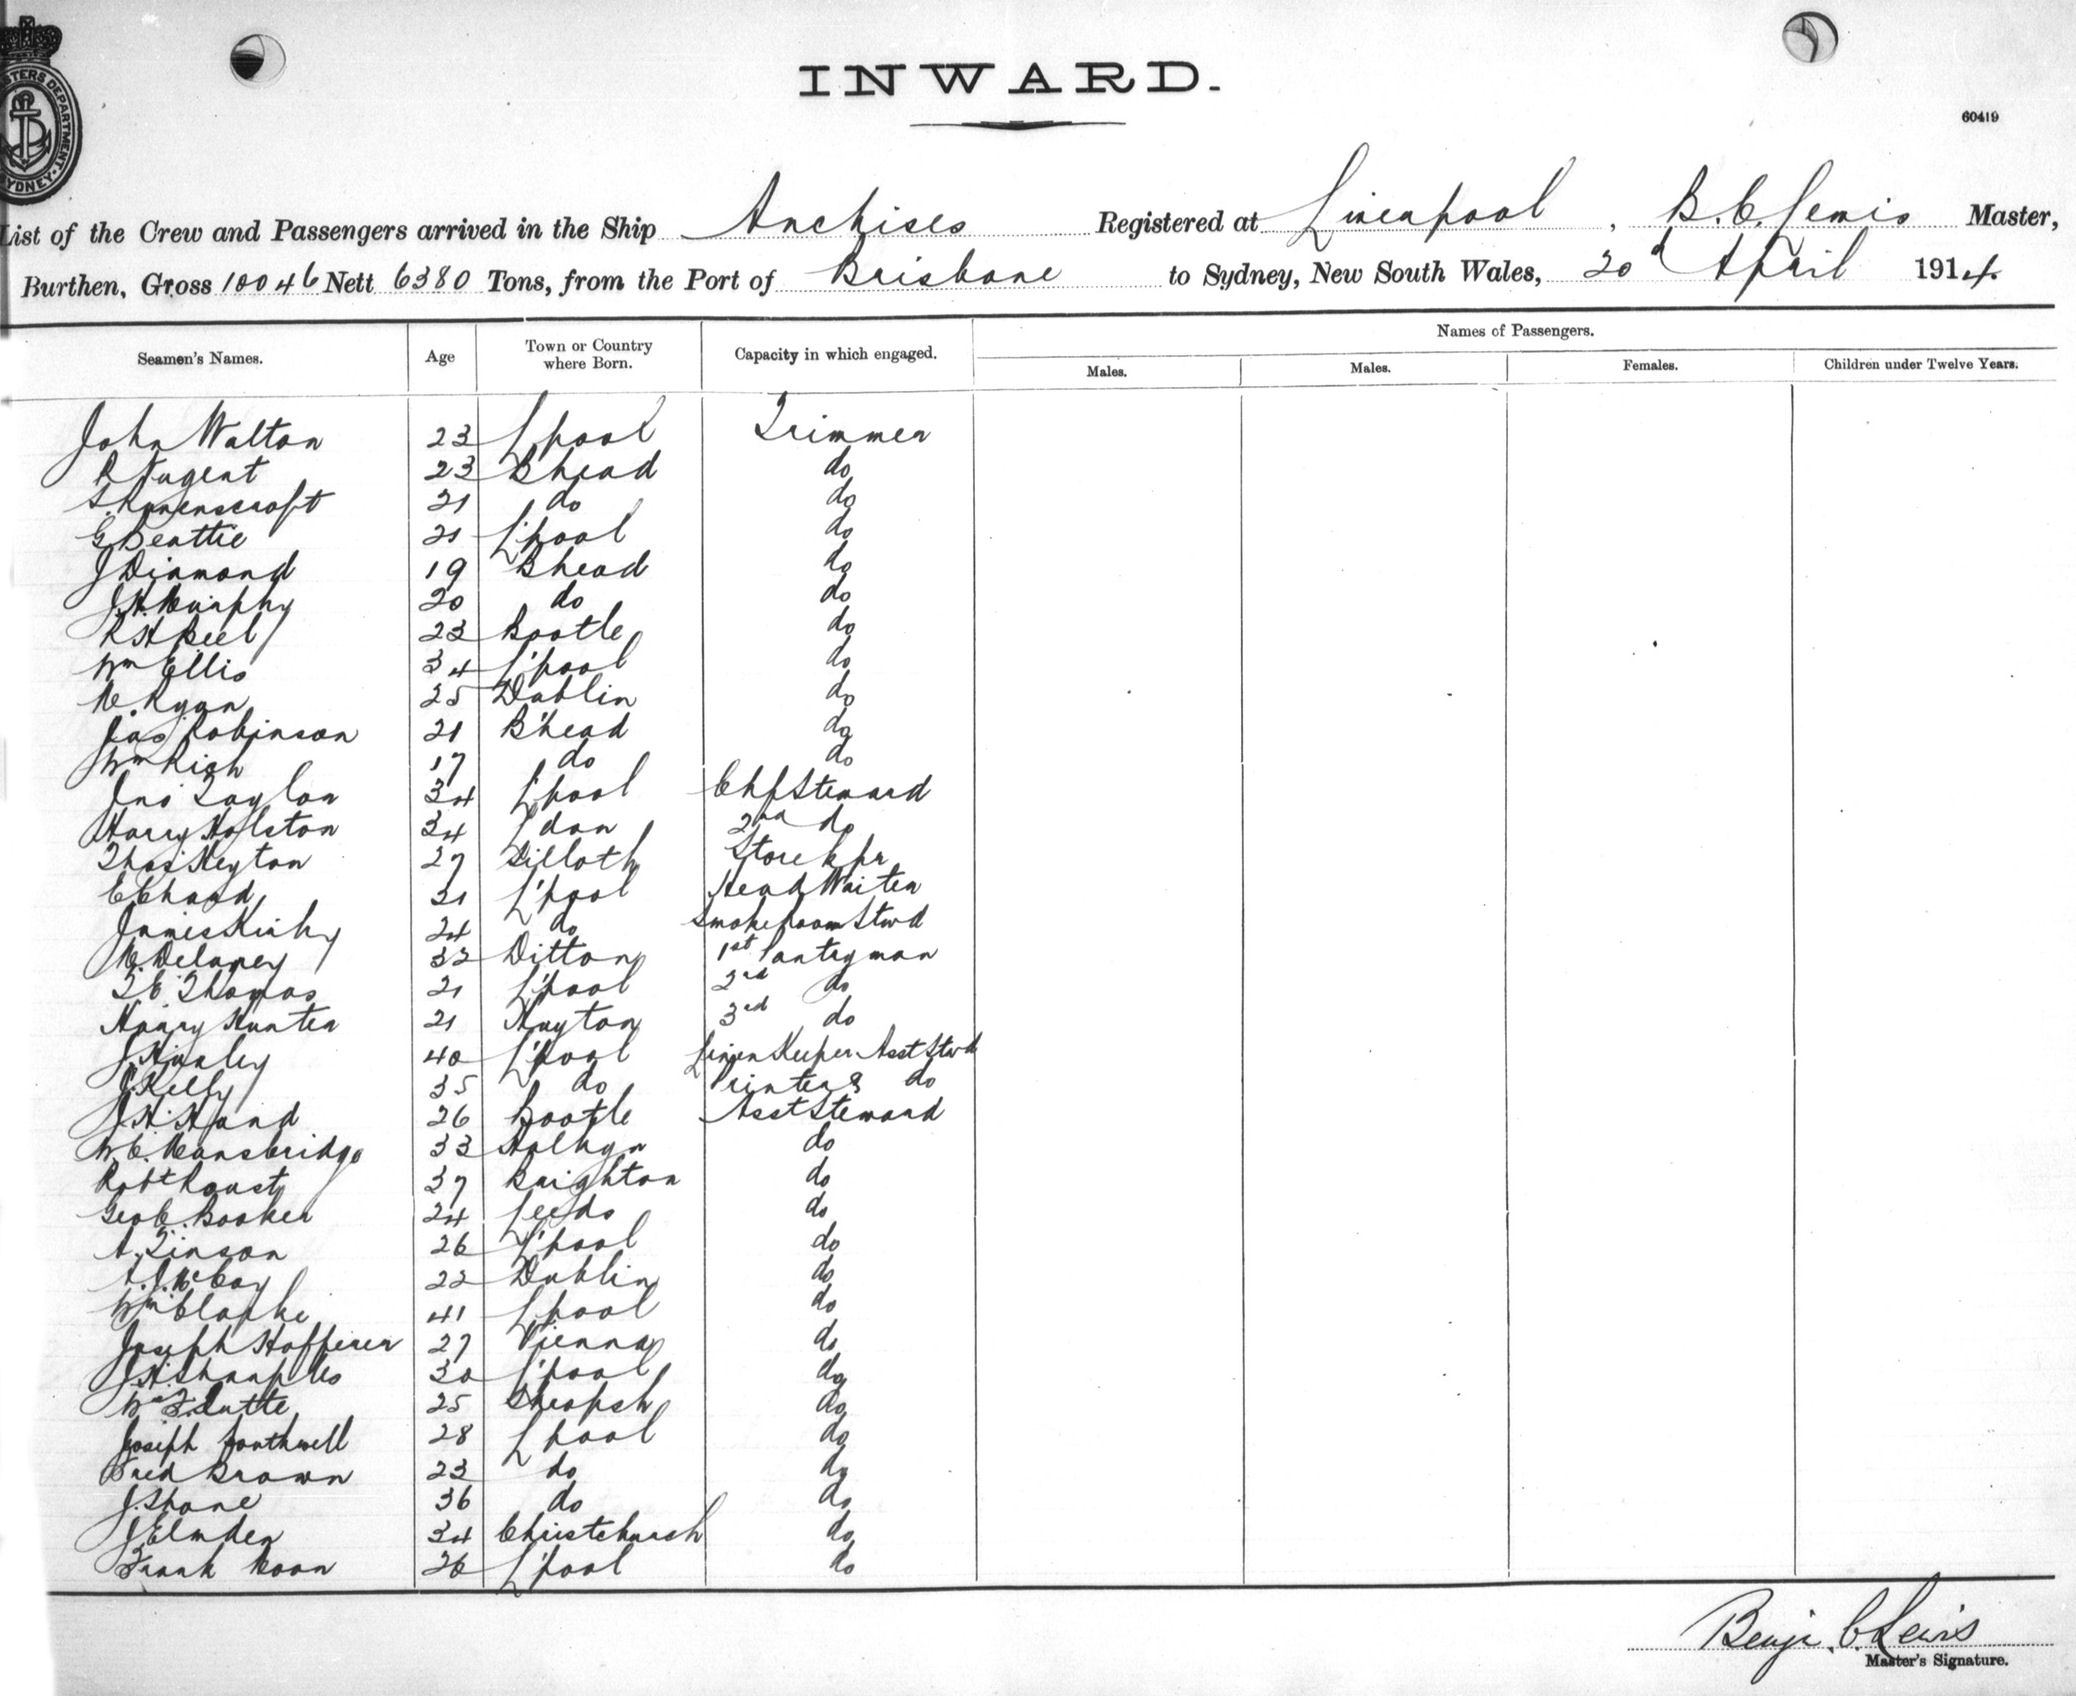 INWARD.
60419
List of the Crew and Passengers arrived in the Ship Anchises Registered at Liverpool, B. C. Lewis Master,
Burthen, Gross 10046 Nett 6380 Tons, from the Port of Brisbane to Sydney, New South Wales, 20 April 1914.
Names of Passengers.
Seamen's Names. Age Town or Country where Born. Capacity in which engaged. Males. Males. Females. Children under Twelve Years.
John Walton 23 L'pool Trimmer
R Nugent 23 Bhead do
S. Ravenscroft 21 do do
G Beattie 21 L'pool do
J Diamond 19 Bhead do
J. H. Murphy 20 do do
R H Peel 23 Bootle do
Wm Ellis 34 L'pool do
M. Ryan 25 Dublin do
Jas Robinson 21 B'head do
Wm Rich 17 do do
Jno Taylor 34 L'pool Chf Steward
Harry Holston 34 Ldon 2nd do
Thos Heyton 27 Silloth Storekpr
E Chard 31 L'pool Head Waiter
James Kirby 24 do Smokeroom Stwd
M. Delaney 32 Ditton 1st Pantryman
T. E. Thomas 21 L'pool 2nd do
Harry Hunter 21 Huyton 3rd do
J. Hurley 40 L'pool Linen Keeper Asst Stwd
J. Kelly 35 do Printer & do
J. H. Hand 26 Bootle Asst Steward
W. C. Mansbridge 33 do
Robt Roust 37 Brighton do
Geo C. Booker 24 Leeds do
A. Tinson 26 L'pool do
A. J. McCoy 22 Dublin do
Wm Clarke 41 L'pool do
Joseph Hofferer 27 Vienna do
J. H. Sharples 30 L'pool do
Wm 25 Shropsh do
Joseph Southwell 28 L'pool do
Fred Brown 23 do do
J. Shone 36 do do
J Elmden 34 Christchurch do
Frank Moon 26 L'pool do
Benj. C. Lewis
Master's Signature.